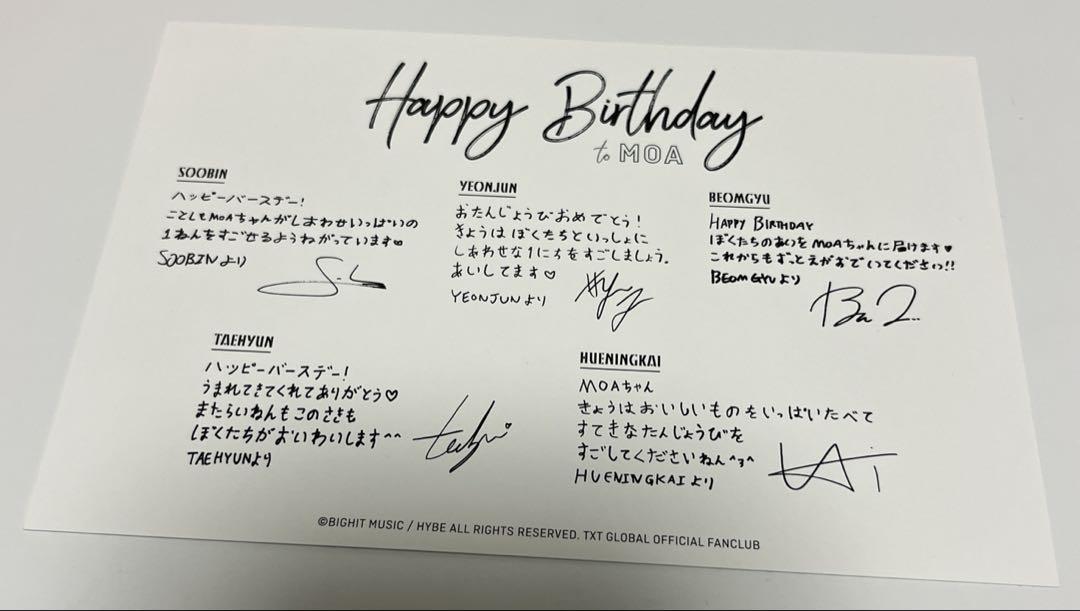 Happy Birthday
to MOA
SOOBIN
ハッピーバースデー!
ことしもMOAちゃんがしあわせいっぱいの
1ねんをすごせるようねがっています♡
SOOBINより
YEONJUN
おたんじょうびおめでとう!
きょうはぼくたちといっしょに
しあわせな1にちをすごしましょう。
あいしてます♡
YEONJUNより
BEOMGYU
HAPPY BIRTHDAY
ぼくたちのあいをMOAちゃんに届けます♥
これからもずっとえがおでいてください!!
BEOMGYUより
TAEHYUN
ハッピーバースデー!
うまれてきてくれてありがとう♡
またらいねんもこのさきも
ぼくたちがおいわいします^^
TAEHYUNより
HUENINGKAI
MOAちゃん
きょうはおいしいものをいっぱいたべて
すてきなたんじょうびを
すごしてくださいねん^з^
HUENINGKAIより
©BIGHIT MUSIC / HYBE ALL RIGHTS RESERVED. TXT GLOBAL OFFICIAL FANCLUB